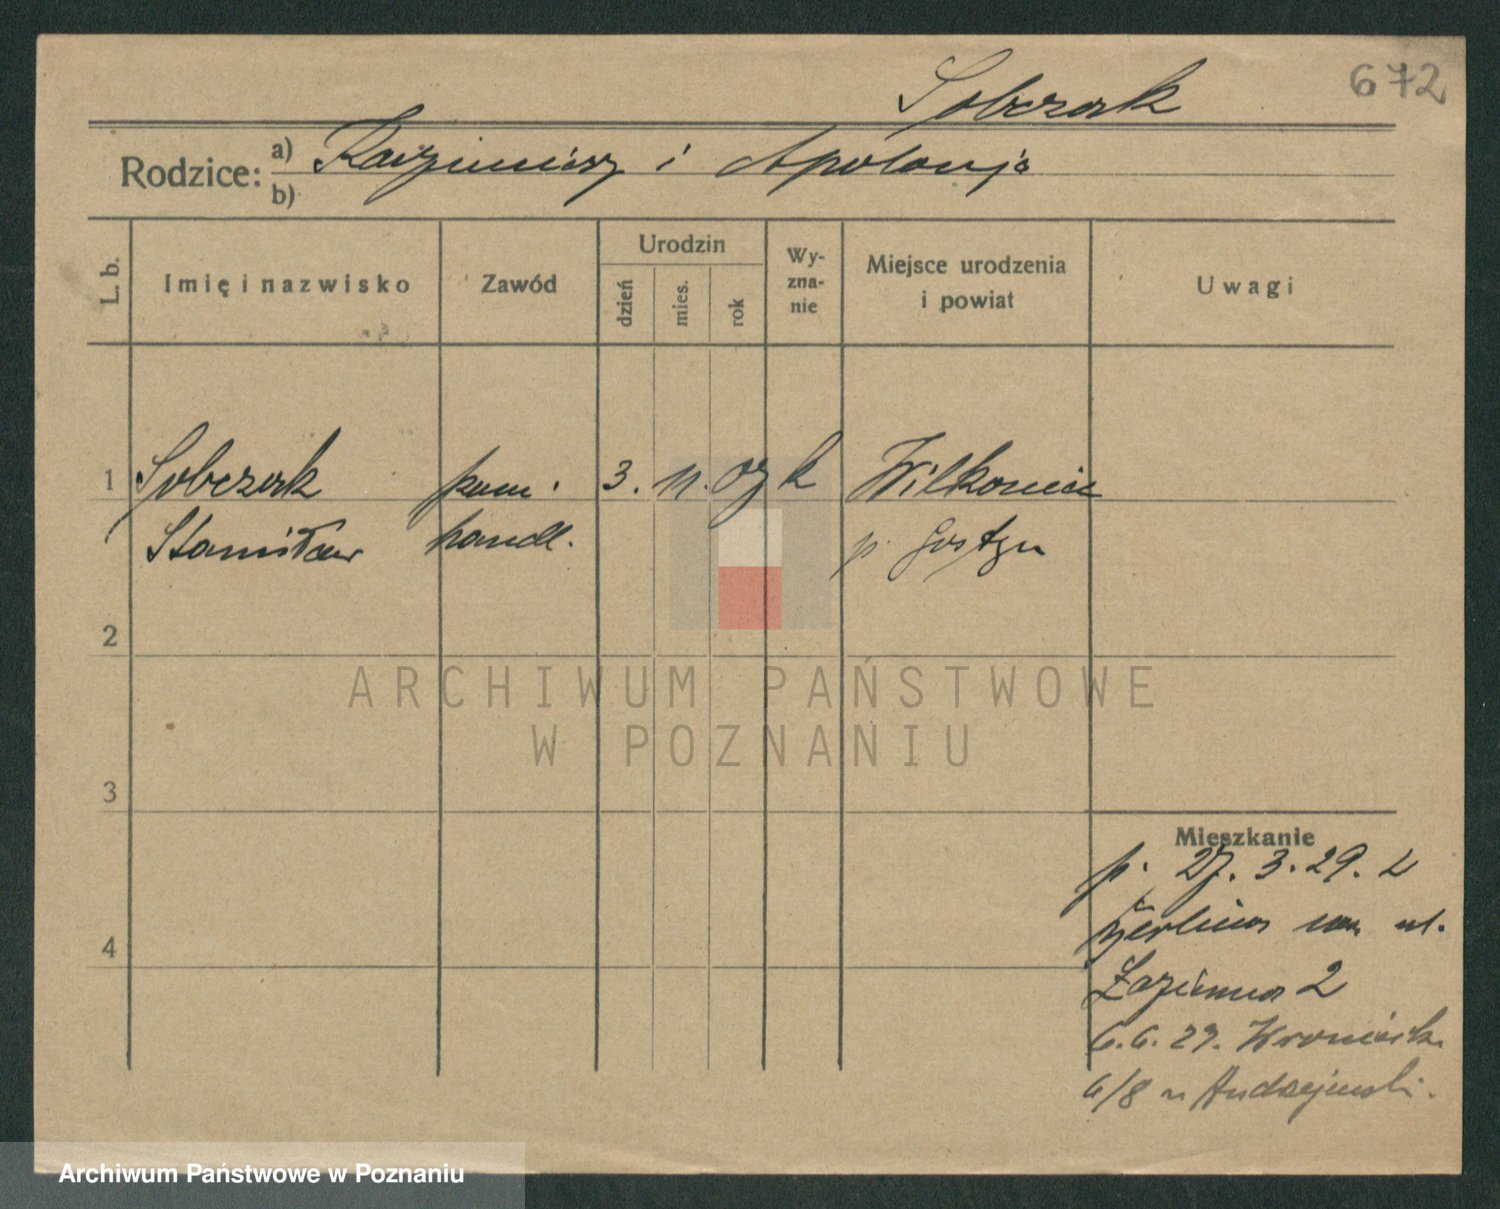 672
Sobczak
Rodzice: a) Kazimierz i Apolonja
b)
L. b.
Imię i nazwisko
Zawód
Urodzin
dzień
mies.
rok
Wy-
zna-
nie
Miejsce urodzenia
i powiat
Uwagi
1 Sobczak pom. 3. 11. 07 k Wilkonice
Stanisław handl. p. Gostyn
2
ARCHIWUM PAŃSTWOWE
W POZNANIU
3
Mieszkanie
p. 27. 3. 29. z
Berlina na ul.
4
Łazienna 2
6.6.29. Wroniecka
6/8 u Andrzejewski.
Archiwum Państwowe w Poznaniu